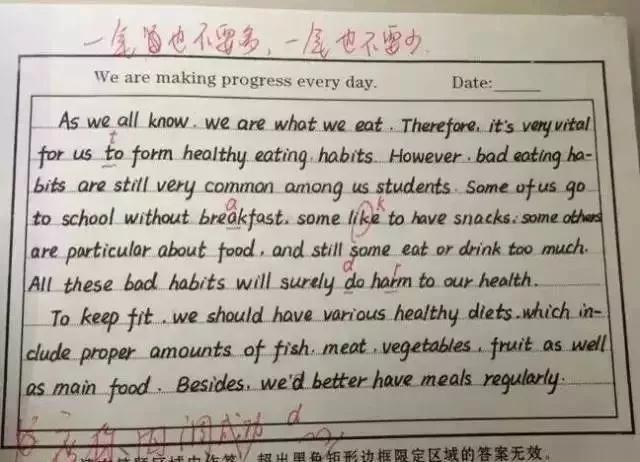 一笔也不要多，一笔也不要少
We are making progress every day. Date:
As we all know, we are what we eat. Therefore, it's very vital
t
for us to form healthy eating habits. However, bad eating ha-
bits are still very common among us students. Some of us go
a k
to school without breakfast, some like to have snacks, some others
are particular about food, and still some eat or drink too much.
d r
All these bad habits will surely do harm to our health.
To keep fit, we should have various healthy diets, which in-
clude proper amounts of fish, meat, vegetables, fruit as well
as main food. Besides, we'd better have meals regularly.
成功 d
超出黑色矩形边框限定区域的答案无效。